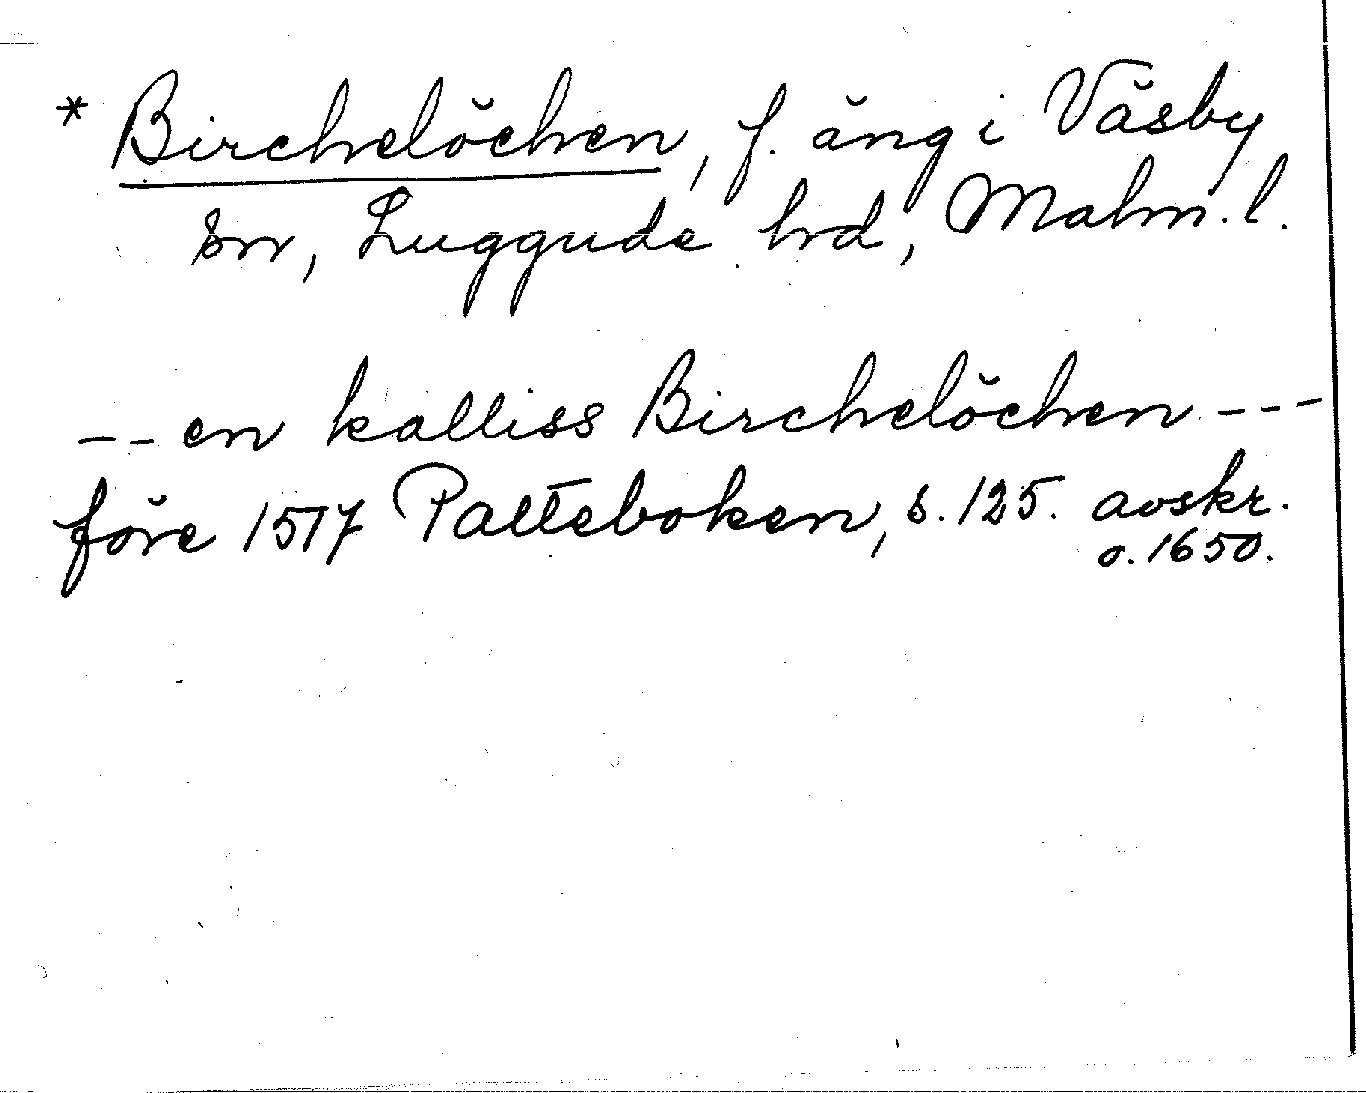 * Birchelöchen, f. äng i Väsby
sn, Luggude hd, Malm. l.
-- en kalliss Birchelöchen ---
före 1517 Palteboken, s. 125. avskr.
o. 1650.